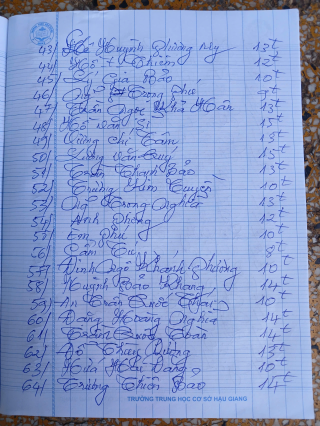 43/ Hồ Huỳnh Phương My 13t
44/ Hồ Thiêm 12t
45/ Lý Gia Bảo 10t
46/ Trọng Phú 9t
47/ Trần Ngọc Khả Hân 13t
48/ Hồ Văn Sĩ 15t
49/ Vương Chí Tâm 13t
50/ Lương Văn Quy 15t
51/ Trần Thanh Bảo 13t
52/ Trương Kim Tuyền 10t
53/ Ngô Trọng Nghĩa 13t
54/ Anh Phong 12t
55/ Em Phú 10t
56/ Cẩm Tú 8t
57/ Đinh Ngô Khánh Phương 10t
58/ Huỳnh Bảo Khang 14t
59/ Trần Quốc Thái 10t
60/ Đặng Hoàng Nghĩa 14t
61/ Trần Quốc Toàn 14t
62/ Đỗ Thùy Dương 13t
63/ Hứa Hải Đăng 10t
64/ Trương Thiên Bảo 14t
TRƯỜNG TRUNG HỌC CƠ SỞ HẬU GIANG